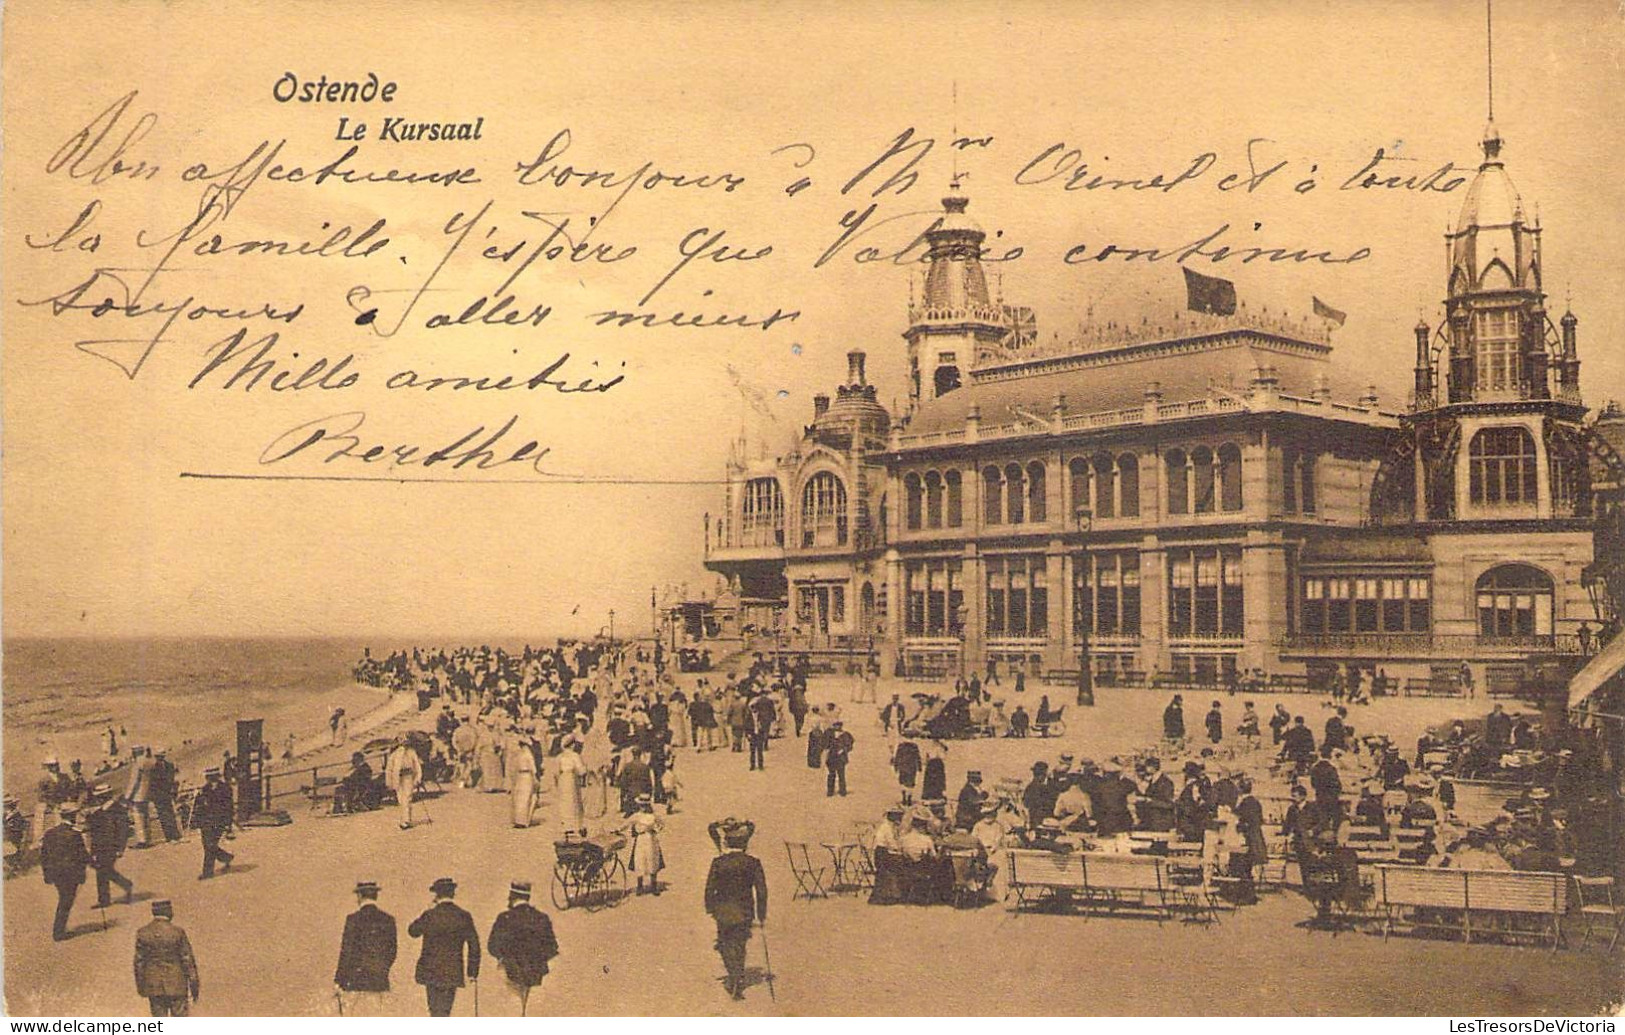 Ostende
Le Kursaal
Un affectueux bonjour à Mr Orinel et à toute
la famille. J'espère que Valérie continue
toujours à aller mieux
Mille amitiés
Berthe
LesTresorsDeVictoria
LesTresorsDeVictoria.delcampe.net